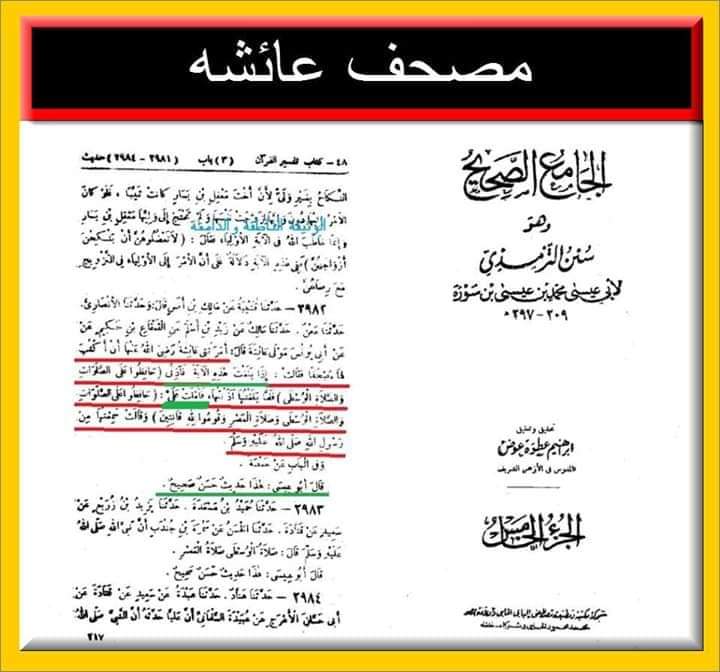 مصحف عائشه
الجامع الصحيح
وهو
سنن الترمذي
لأبي عيسى محمد بن عيسى بن سورة
٢٠٩ - ٢٩٧ ه
تحقيق وتعليق
ابراهيم عطوة عوض
المدرس في الأزهر الشريف
الجزء الخامس
٤٨ – كتاب تفسير القرآن (٣) باب (٢٩٨١ – ٢٩٨٤) حديث
النكاح بغير ولي لأن أخت معقل بن يسار كانت ثيبا ، فلو كان
الأمر إليها دون وليها لزوجت نفسها ولم تحتج إلى وليها معقل بن يسار
الوثيقة الناطقة و الدامغة
وإنما خاطب الله في الآية الأولياء فقال : (لا تعضلوهن أن ينكحن
أزواجهن) ففي هذه الآية دلالة على أن الأمر إلى الأولياء في التزويج
مع رضاهن .
٢٩٨٢ – حدثنا قتيبة عن مالك بن أنس قال: وحدثنا الأنصاري،
حدثنا معن . حدثنا مالك عن زيد بن أسلم عن القعقاع بن حكيم عن
أبي يونس مولى عائشة قال: أمرتني عائشة رضي الله عنها أن أكتب
لها مصحفا فقالت : إذا بلغت هذه الآية فآذني (حافظوا على الصلوات
والصلاة الوسطى) فلما بلغتها آذنتها، فأملت علي : (حافظوا على الصلوات
والصلاة الوسطى وصلاة العصر وقوموا لله قانتين) وقالت سمعتها من
رسول الله صلى الله عليه وسلم .
وفي الباب عن حفصة .
قال أبو عيسى : هذا حديث حسن صحيح .
٢٩٨٣ – حدثنا حميد بن مسعدة . حدثنا يزيد بن زريع عن
سعيد عن قتادة . حدثنا الحسن عن سمرة بن جندب أن نبي الله صلى الله
عليه وسلم قال : صلاة الوسطى صلاة العصر .
قال أبو عيسى : هذا حديث حسن صحيح .
٢٩٨٤ – حدثنا هناد . حدثنا عبدة عن سعيد عن قتادة عن
أبي حسان الأعرج عن عبيدة السلماني أن عليا حدثه أن النبي صلى الله
٢١٧